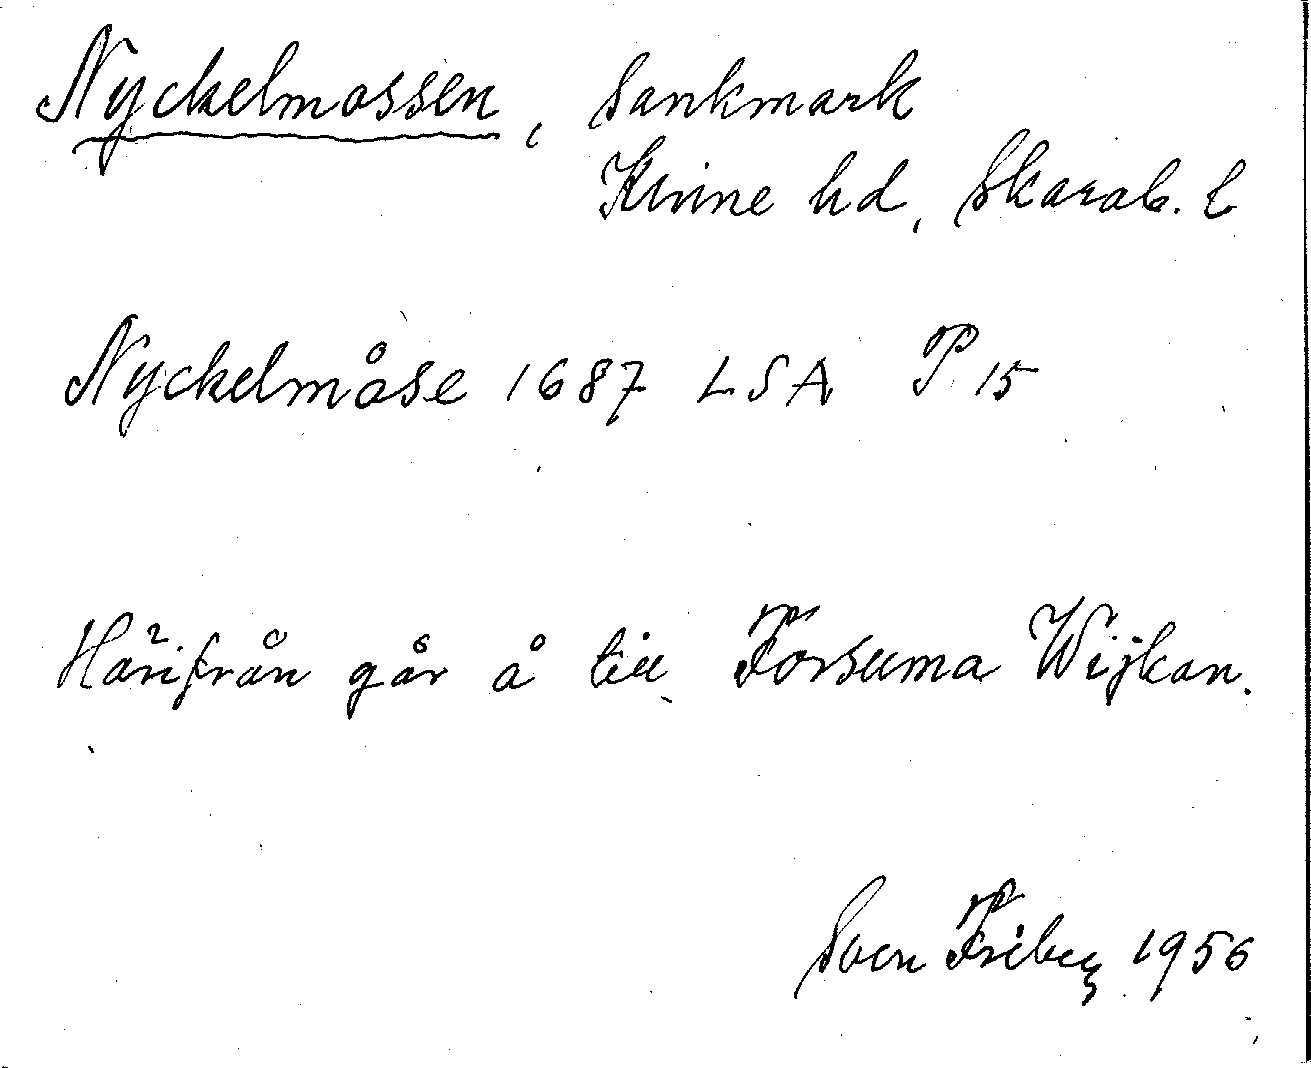 Nyckelmossen, Sankmark
Kinne hd, Skarab. l
Nyckelmåse 1687 LSA P 15
Härifrån går å till Forsuma Wijkan.
Sven Friberg 1956